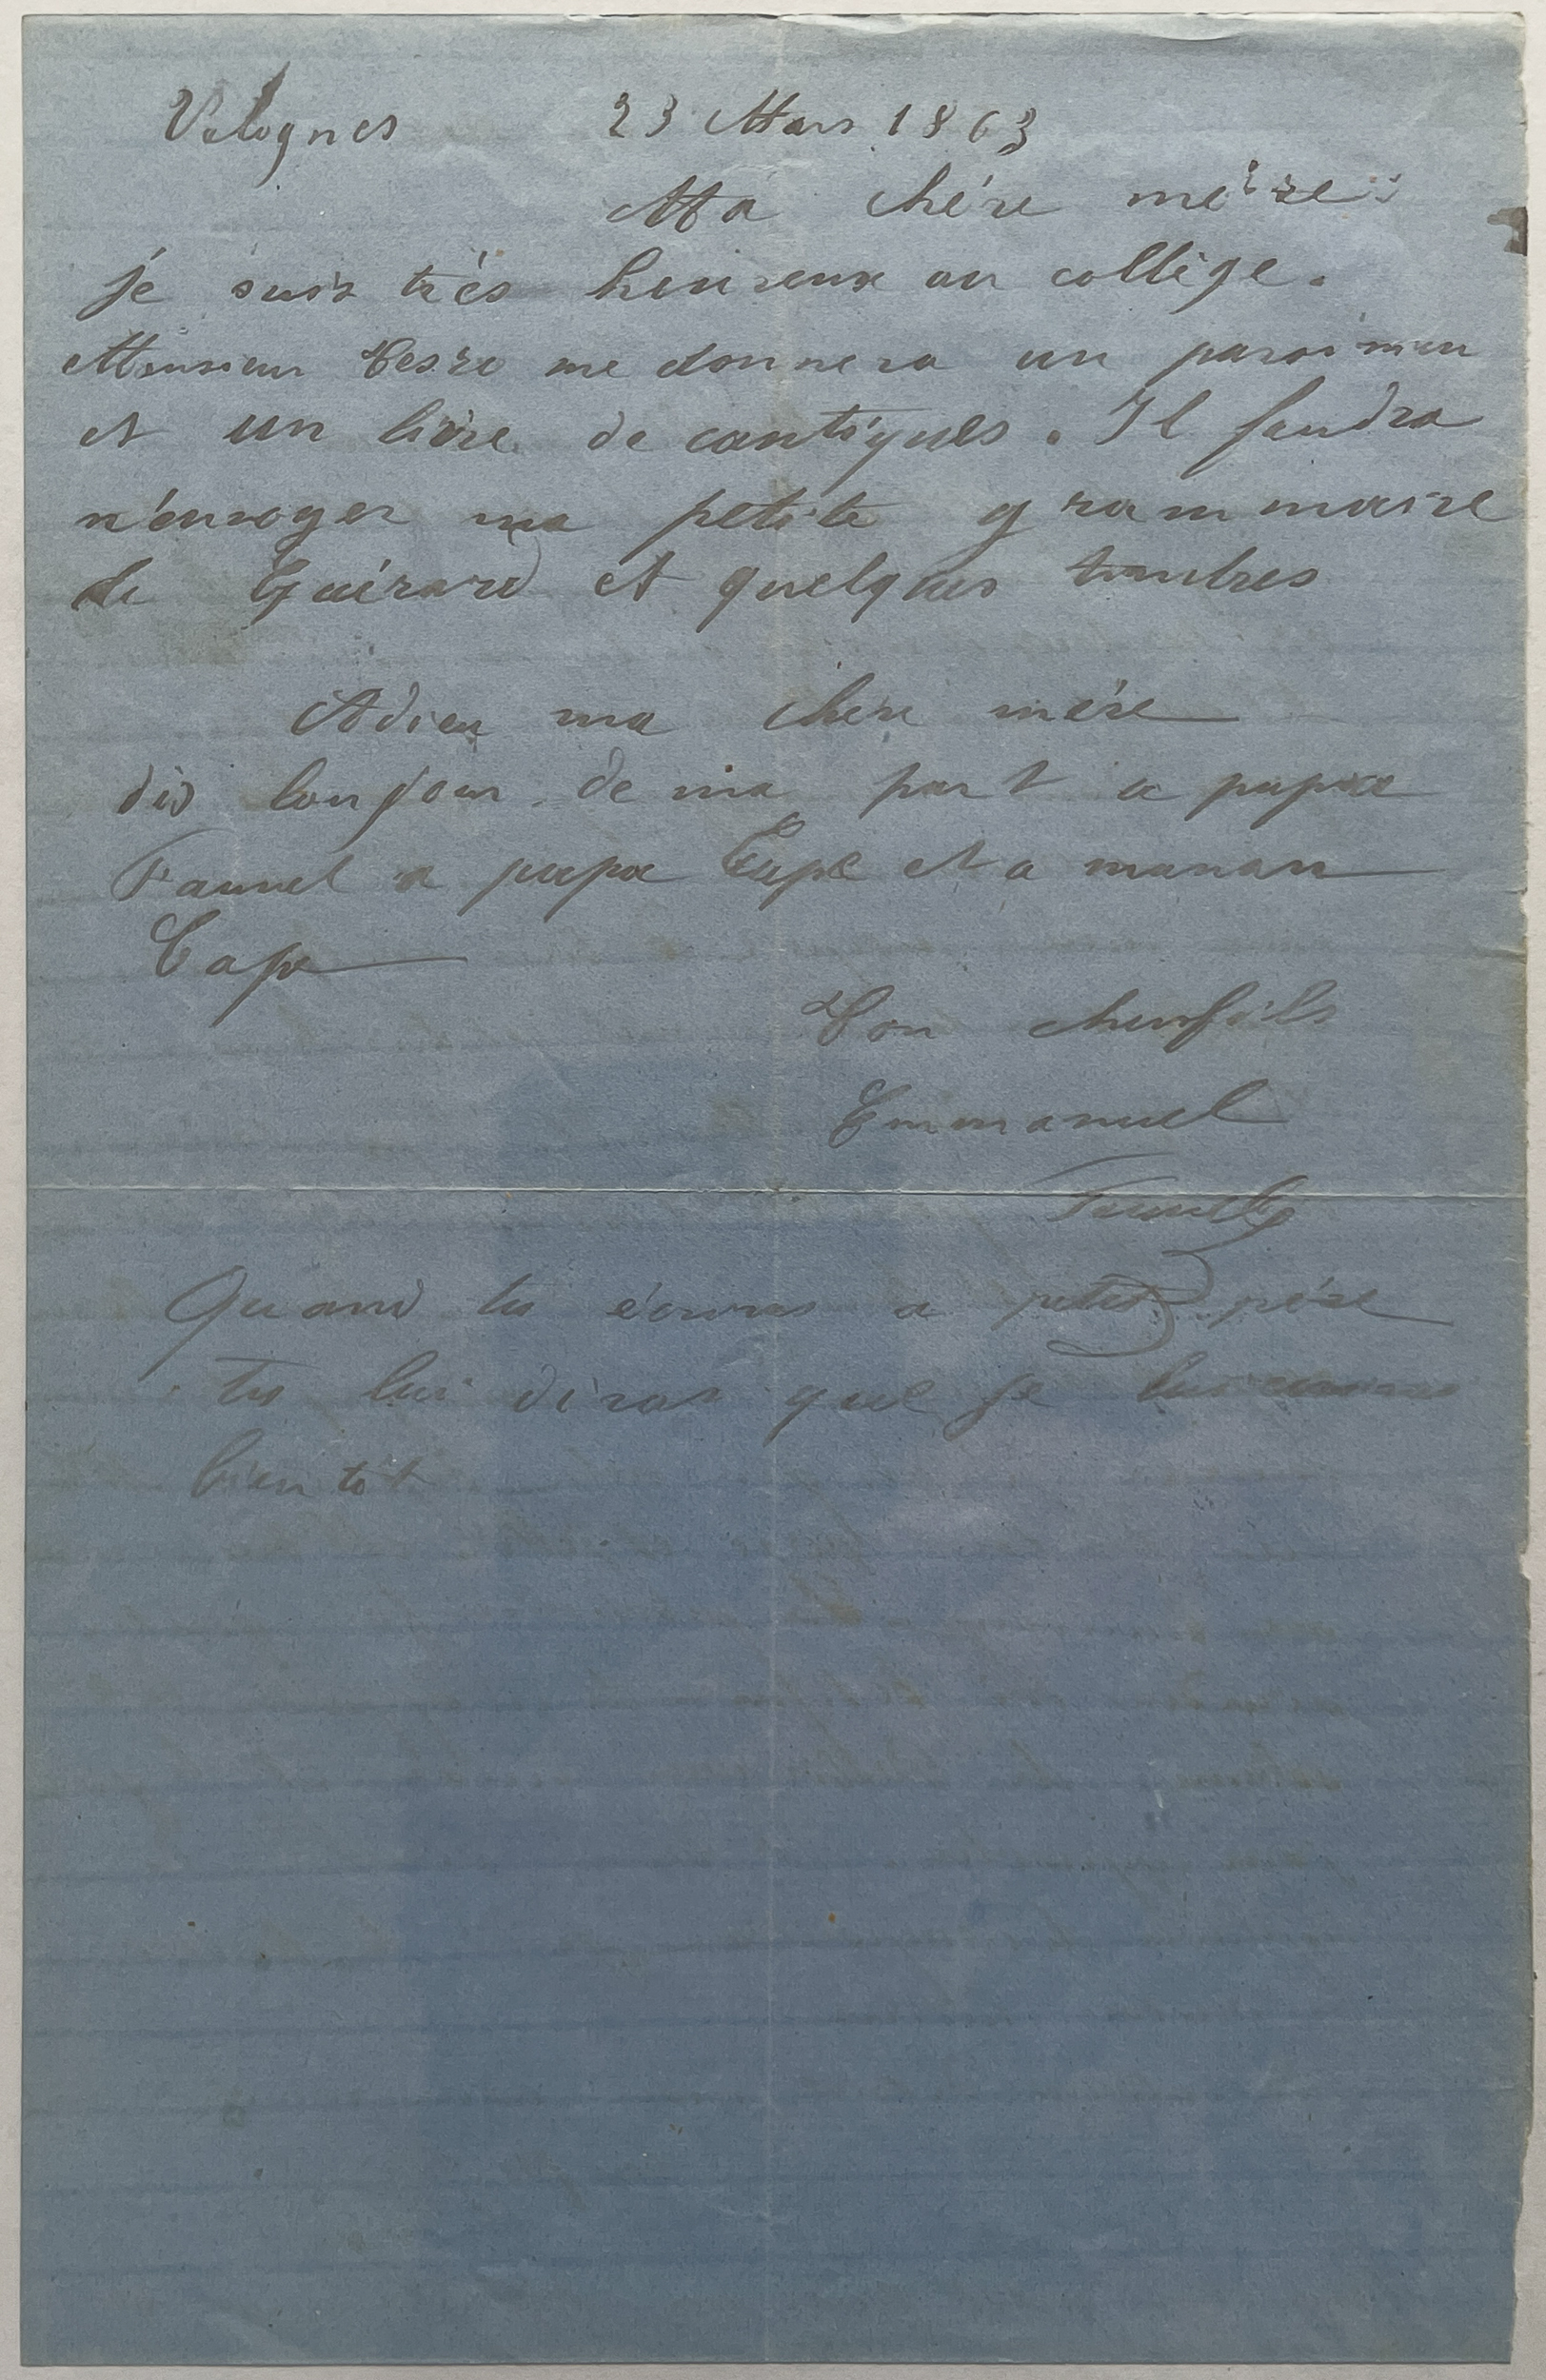 Valognes 23 Mars 1863
Ma chére mére
je suis trés heureux au collège.
Monsieur me donnera un paroissien
et un livre de cantiques. Il faudra
m'envoyer ma petite grammaire
de Guérard et quelques timbres
Adieu ma chere mére
dis bonjour de ma part a papa
Fauvel a papa Cape et a maman
Cape
Ton cher fils
Emmanuel
Fauvel
Quand tu écriras a petit pére
tu lui diras que je lui
bientôt